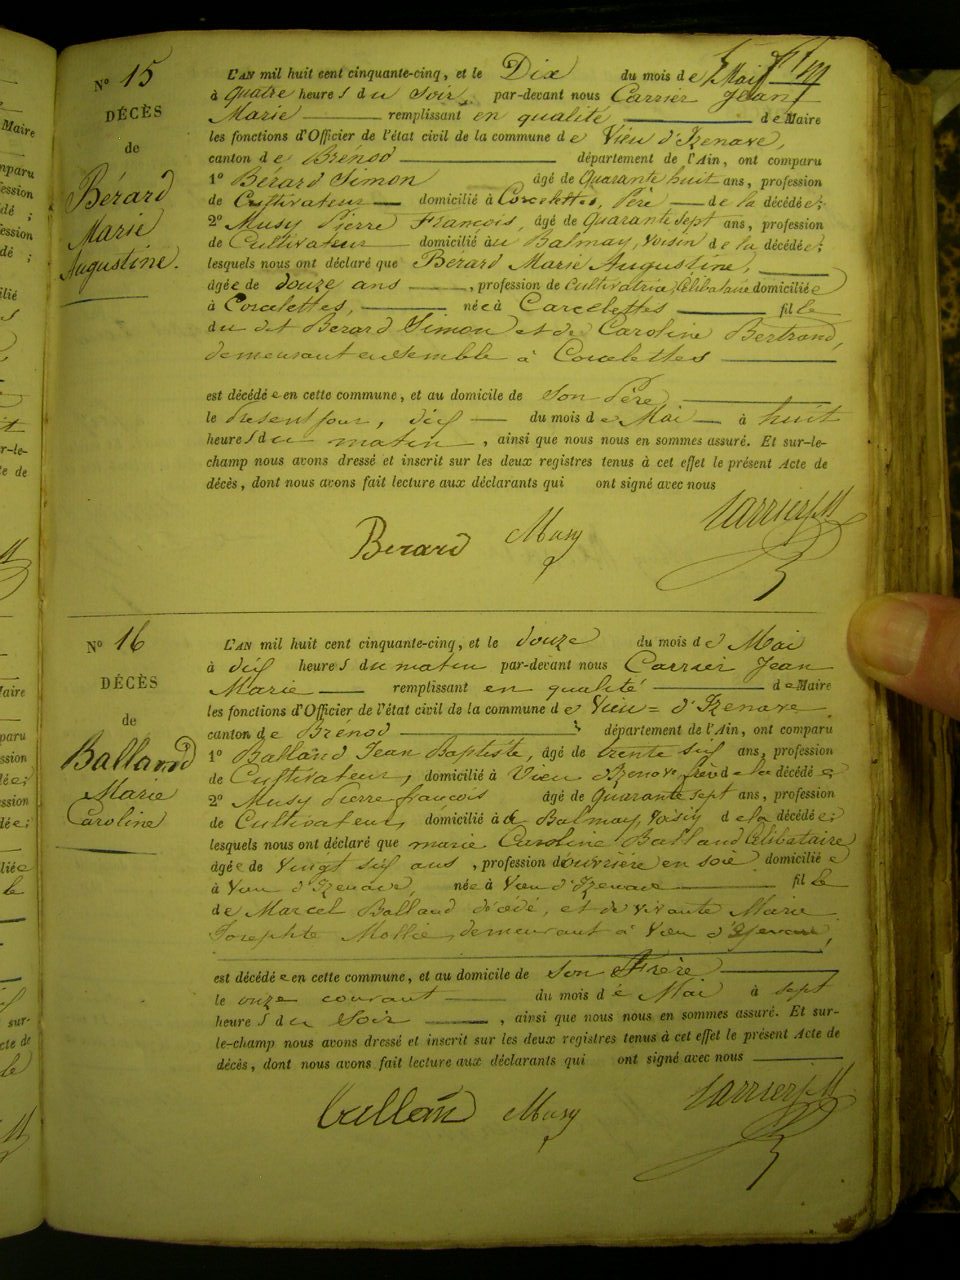 N° 15
DÉCÈS
de
Bérard
Marie
Augustine.
L'AN mil huit cent cinquante-cinq, et le Dix du mois de Mai
à quatre heures du soir, par-devant nous Carrier Jean
Marie remplissant en qualité de Maire
les fonctions d'Officier de l'état civil de la commune de Vieu d'Izenave,
canton de Brénod département de l'Ain, ont comparu
1° Bérard Simon âgé de Quarante huit ans, profession
de Cultivateur domicilié à Corcelettes, Père de la décédée;
2° Musy Pierre François, âgé de Quarante sept ans, profession
de Cultivateur domicilié au Balmay, voisin de la décédée;
lesquels nous ont déclaré que Bérard Marie Augustine,
âgée de douze ans, profession de cultivatrice, célibataire domiciliée
à Corcelettes, née à Corcelettes fille
du dit Berard Simon et de Caroline Bertrand,
demeurant ensemble à Corcelettes
est décédée en cette commune, et au domicile de son Père,
le présent jour, dix du mois de Mai à huit
heures du matin, ainsi que nous nous en sommes assuré. Et sur-le-
champ nous avons dressé et inscrit sur les deux registres tenus à cet effet le présent Acte de
décès, dont nous avons fait lecture aux déclarants qui ont signé avec nous
Berard Musy Carrier JM
N° 16
DÉCÈS
de
Balland
Marie
Caroline
L'AN mil huit cent cinquante-cinq, et le douze du mois de Mai
à dix heures du matin par-devant nous Carrier Jean
Marie remplissant en qualité de Maire
les fonctions d'Officier de l'état civil de la commune de Vieu = d'Izenave
canton de Brenod département de l'Ain, ont comparu
1° Balland Jean Baptiste, âgé de trente six ans, profession
de Cultivateur, domicilié à Vieu d'Izenave, frère de la décédée;
2° Musy Pierre françois âgé de Quarante sept ans, profession
de Cultivateur, domicilié à Balmay, voisin de la décédée;
lesquels nous ont déclaré que marie Caroline Balland Célibataire
âgée de vingt six ans, profession d'ouvrière en soie domiciliée
à Vieu d'Izenave, née à Vieu d'Izenave fille
de Marcel Balland décédé, et de vivante Marie
Josephte Mollie, demeurant à Vieu d'Izenave,
est décédée en cette commune, et au domicile de son Frère
le onze courant du mois de Mai à sept
heures du soir, ainsi que nous nous en sommes assuré. Et sur-
le-champ nous avons dressé et inscrit sur les deux registres tenus à cet effet le présent Acte de
décès, dont nous avons fait lecture aux déclarants qui ont signé avec nous
Balland Musy Carrier JM